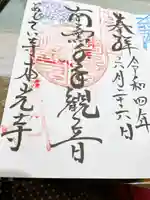 奉拝
令和四年
六月二十六日
南無千手觀音
あじさい寺 本光寺